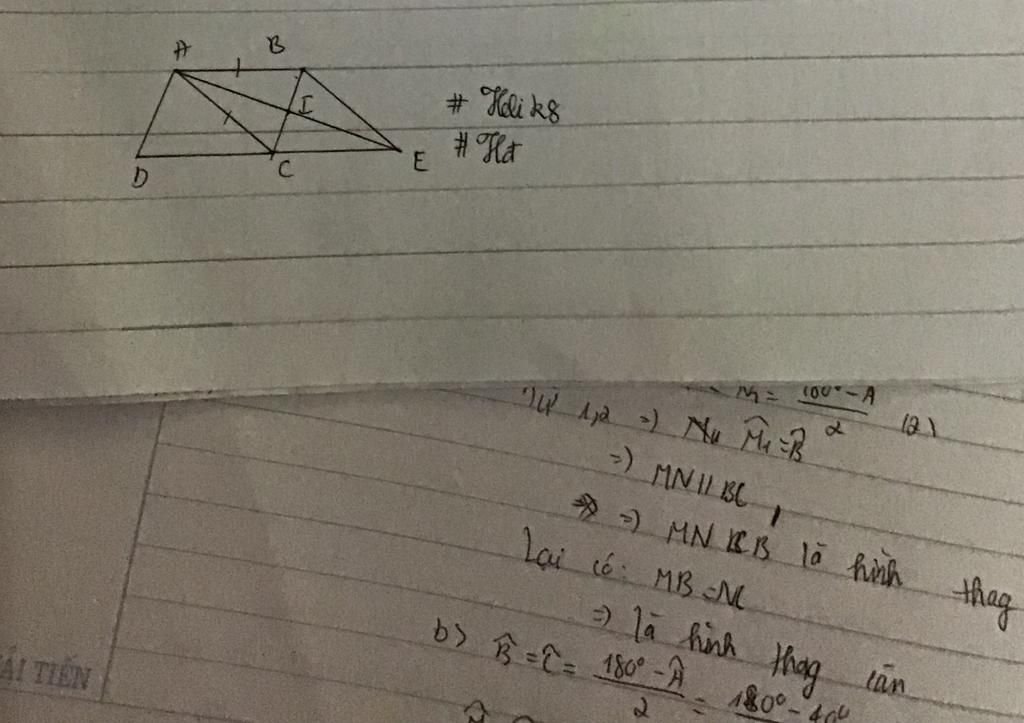 A B
I
# Heli k8
# Hđ
D C E
= 180° - A / 2 (2)
Từ 1,2 => M̂₁ = B̂
=> MN // BC
=> MN CB là hình thag
Lại có: MB = NC
=> là hình thag cân
b) B̂ = Ĉ = 180° - Â / 2 = 180° - 40°
ẢI TIẾN